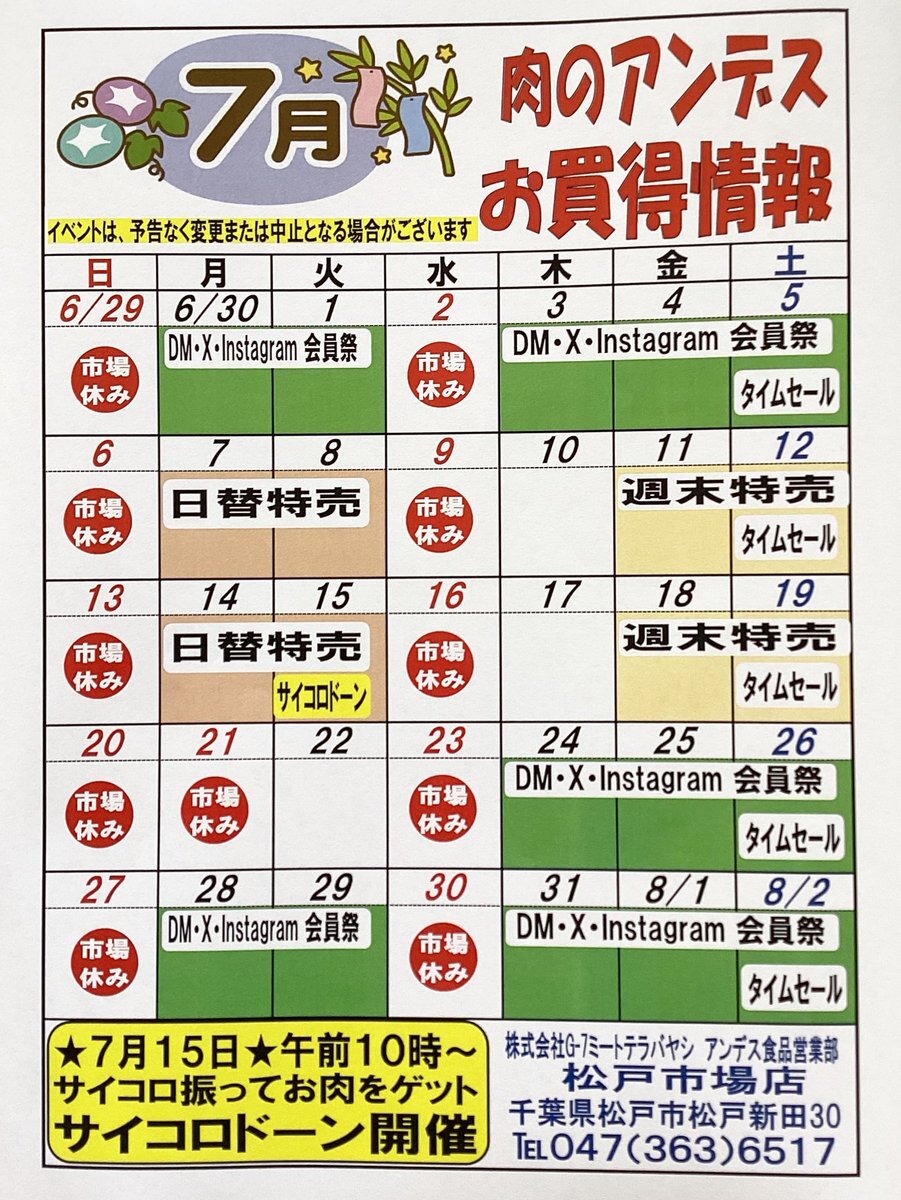 7月
肉のアンデス
お買得情報
イベントは、予告なく変更または中止となる場合がございます
日 月 火 水 木 金 土
6/29 6/30 1 2 3 4 5
市場休み DM・X・Instagram 会員祭 市場休み DM・X・Instagram 会員祭
タイムセール
6 7 8 9 10 11 12
市場休み 日替特売 市場休み 週末特売
タイムセール
13 14 15 16 17 18 19
市場休み 日替特売 市場休み 週末特売
サイコロドーン タイムセール
20 21 22 23 24 25 26
市場休み 市場休み 市場休み DM・X・Instagram 会員祭
タイムセール
27 28 29 30 31 8/1 8/2
市場休み DM・X・Instagram 会員祭 市場休み DM・X・Instagram 会員祭
タイムセール
★7月15日★午前10時～
サイコロ振ってお肉をゲット
サイコロドーン開催
株式会社G-7ミートテラバヤシ アンデス食品営業部
松戸市場店
千葉県松戸市松戸新田30
TEL047(363)6517